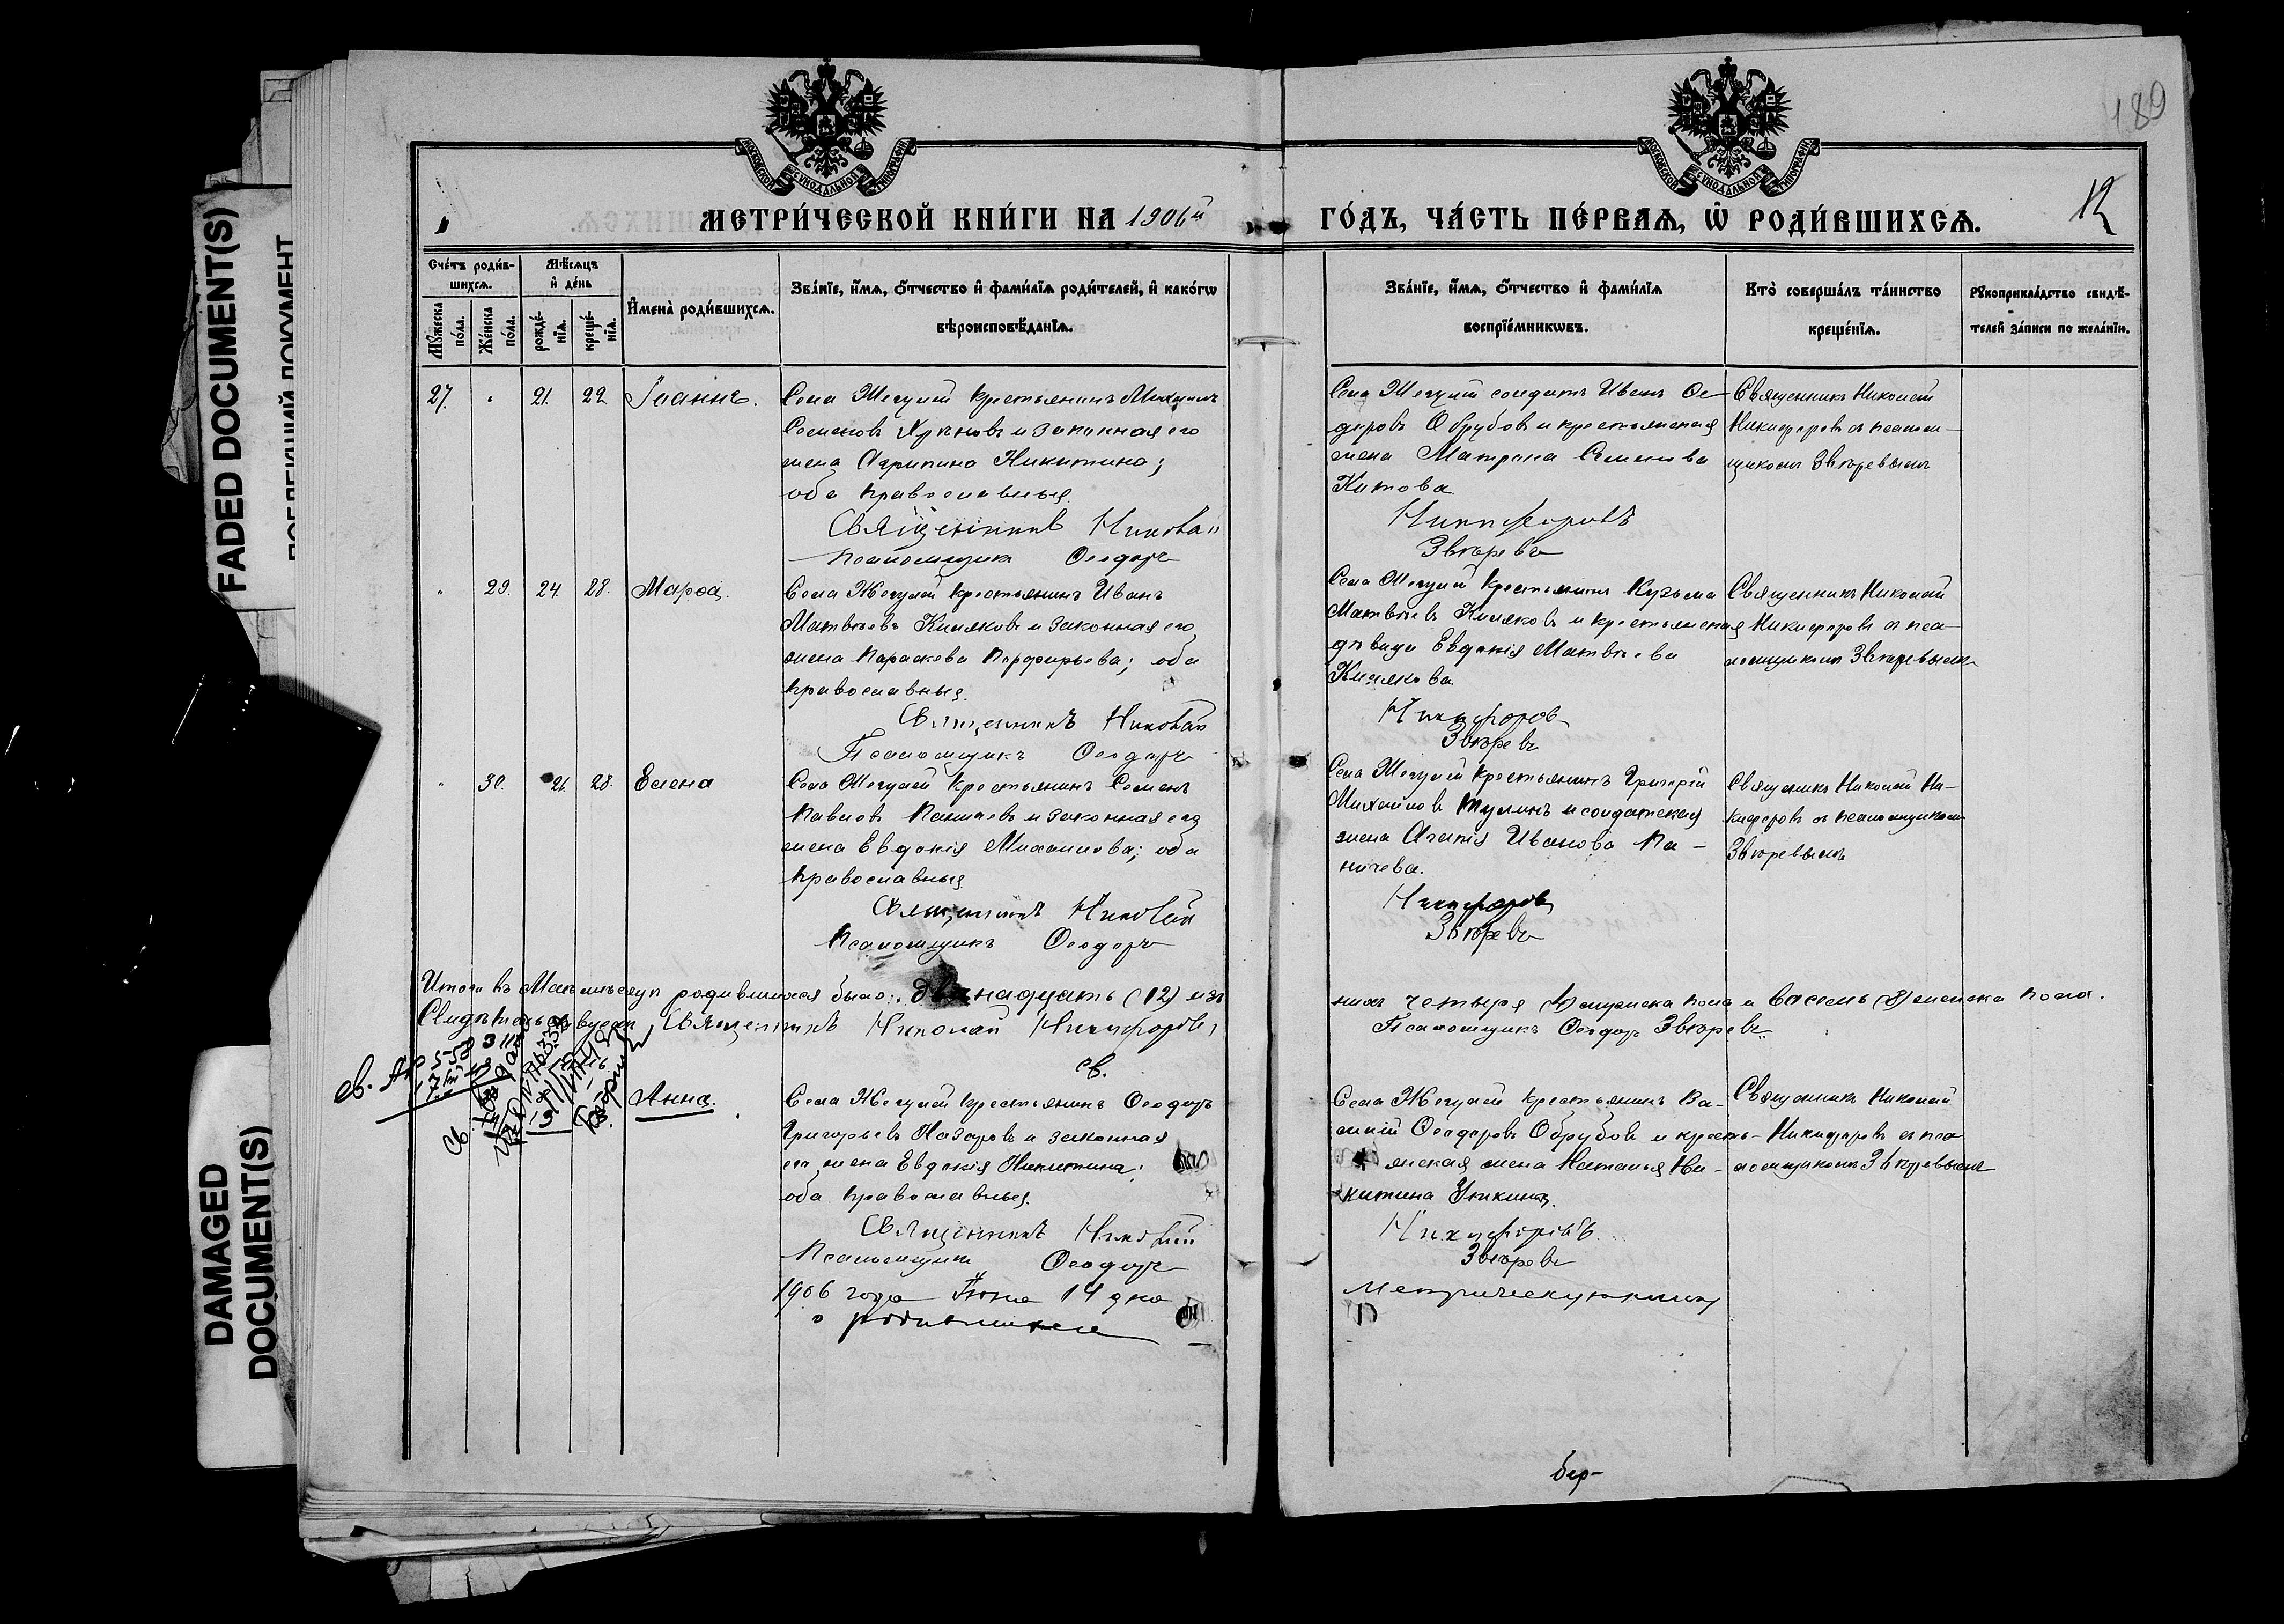 FADED DOCUMENT(S)
DAMAGED
DOCUMENT(S)
189
12
МОСКОВСКОЙ СУНОДАЛЬНОЙ ТИПОГРАФІИ
МОСКОВСКОЙ СУНОДАЛЬНОЙ ТИПОГРАФІИ
МЕТРИ́ЧЕСКОЙ КНИ́ГИ НА 1906й
ГО́ДЪ, ЧА́СТЬ ПЕ́РВАѦ, Ѡ҆ РОДИ́ВШИХСѦ.
Сче́тъ роди́в-
шихсѧ.
Мꙋ́жеска
по́ла.
Же́нска
по́ла.
Мѣ́сяцъ
и҆ де́нь
рожде́-
нїѧ.
креще́-
нїѧ.
И҆мена̀ роди́вшихсѧ.
Зва́нїе, и҆́мѧ, ѻ҆́тчество и҆ фами́лїѧ роди́телей, и҆ како́гѡ
вѣроисповѣ́данїѧ.
Зва́нїе, и҆́мѧ, ѻ҆́тчество и҆ фами́лїѧ
воспрїе́мникѡвъ.
Кто̀ соверша́лъ та́инство
креще́нїѧ.
Рꙋкоприкла́дство свидѣ́-
телей за́писи по жела́нїю.
27. " 21. 22. Іоаннъ.
Села Жегулей крестьянинъ Михаилъ
Семеновъ и законная его
жена Агрипина Никитина;
оба православныя.
Священникъ Николай
Псаломщикъ Ѳеодоръ
Села Жегулей солдатъ Иванъ Ѳе-
доровъ Обрубовъ и крестьянская
жена Матрона Семенова
Китова.
Никифоровъ
Звѣревъ
Священникъ Николай
Никифоровъ съ псалом-
щикомъ Звѣревымъ
" 29. 24. 28. Марѳа.
Села Жегулей крестьянинъ Иванъ
Матвѣевъ Кисляковъ и законная его
жена Параскева Порфирьева; оба
православныя.
Священникъ Николай
Псаломщикъ Ѳеодоръ
Села Жегулей крестьянинъ Кузьма
Матвѣевъ Кисляковъ и крестьянская
дѣвица Евдокія Матвѣева
Кислякова.
Никифоровъ
Звѣревъ
Священникъ Николай
Никифоровъ съ пса-
ломщикомъ Звѣревымъ
" 30. 21. 28. Елена
Села Жегулей крестьянинъ Семенъ
Павловъ и законная его
жена Евдокія Михаилова; оба
православныя
Священникъ Николай
Псаломщикъ Ѳеодоръ
Села Жегулей крестьянинъ Григорій
Михайловъ Тулинъ и солдатская
жена Агапія Иванова Па-
ничева.
Никифоровъ
Звѣревъ
Священникъ Николай Ни-
кифоровъ съ псаломщикомъ
Звѣревымъ
Итого въ Маѣ мѣсяцѣ родившихся было: двѣнадцать (12) изъ
нихъ четыре (4) мужеска пола и восемь (8) женска пола.
Свидѣтельствуетъ Священникъ Николай Никифоровъ,
Псаломщикъ Ѳеодоръ Звѣревъ.
св.
Анна.
Села Жегулей крестьянинъ Ѳеодоръ
Григорьевъ Назаровъ и законная
его жена Евдокія Никитина;
оба православныя.
Священникъ Николай
Псаломщикъ Ѳеодоръ
Села Жегулей крестьянинъ Ва-
силій Ѳеодоровъ Обрубовъ и кресть-
янская жена Наталья Ни-
китина
Никифоровъ.
Звѣревъ
Священникъ Николай
Никифоровъ съ пса-
ломщикомъ Звѣревымъ
1906 года Іюня 14 дня
метрическую книгу
о родившихся